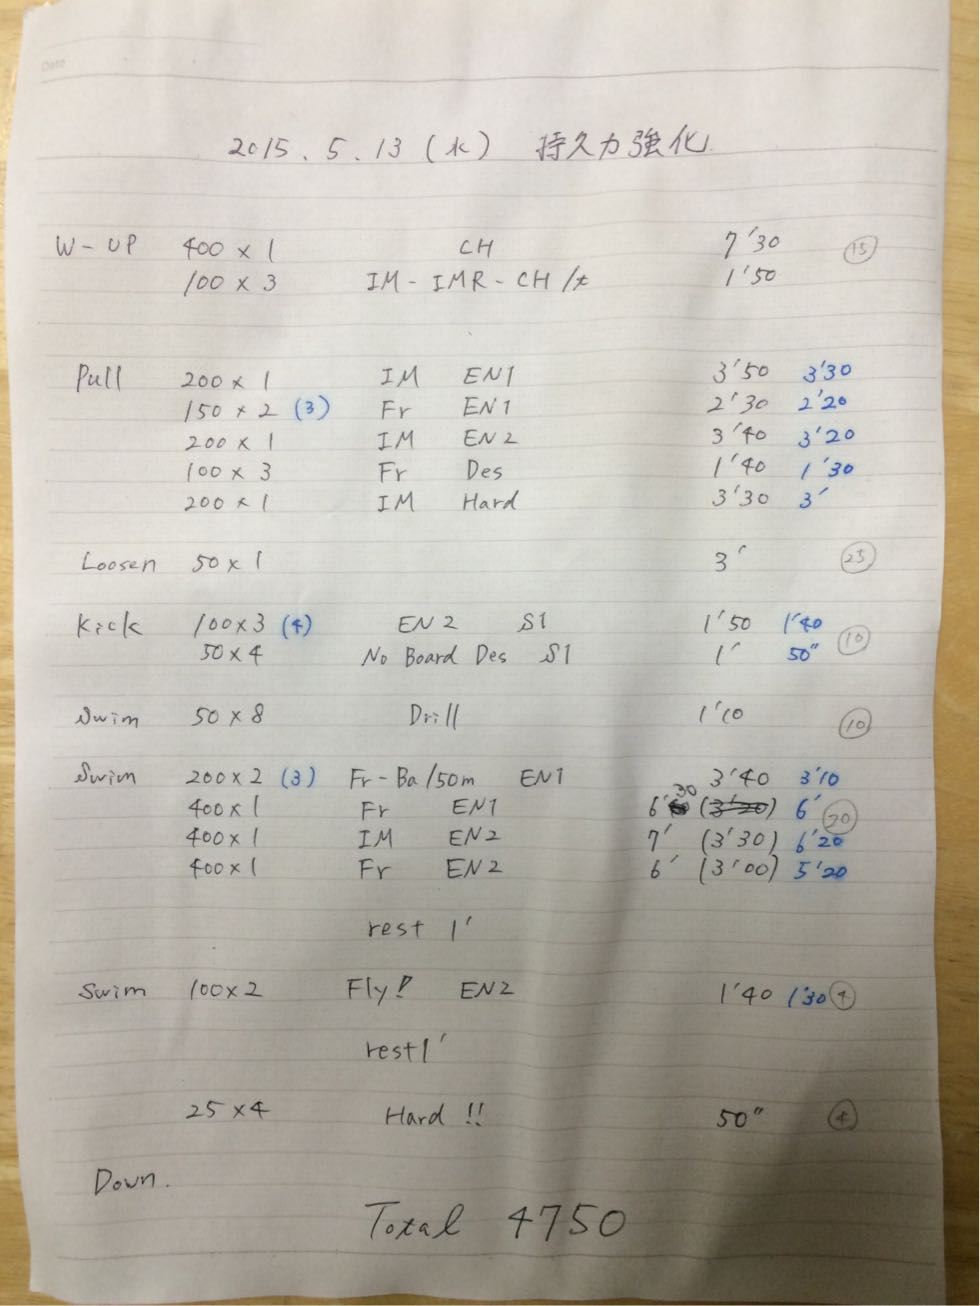 Date
2015. 5. 13 (水) 持久力強化
W-UP 400 × 1 CH 7'30 15
100 × 3 IM - IMR - CH /t 1'50
Pull 200 × 1 IM EN1 3'50 3'30
150 × 2 (3) Fr EN1 2'30 2'20
200 × 1 IM EN2 3'40 3'20
100 × 3 Fr Des 1'40 1'30
200 × 1 IM Hard 3'30 3'
Loosen 50 × 1 3' 25
Kick 100 × 3 (4) EN2 S1 1'50 1'40
50 × 4 No Board Des S1 1' 50" 10
Swim 50 × 8 Drill 1'10 10
Swim 200 × 2 (3) Fr - Ba /50m EN1 3'40 3'10
400 × 1 Fr EN1 6'30 (3'20) 6' 20
400 × 1 IM EN2 7' (3'30) 6'20
400 × 1 Fr EN2 6' (3'00) 5'20
rest 1'
Swim 100 × 2 Fly! EN2 1'40 1'30 4
rest 1'
25 × 4 Hard !! 50" 4
Down.
Total 4750